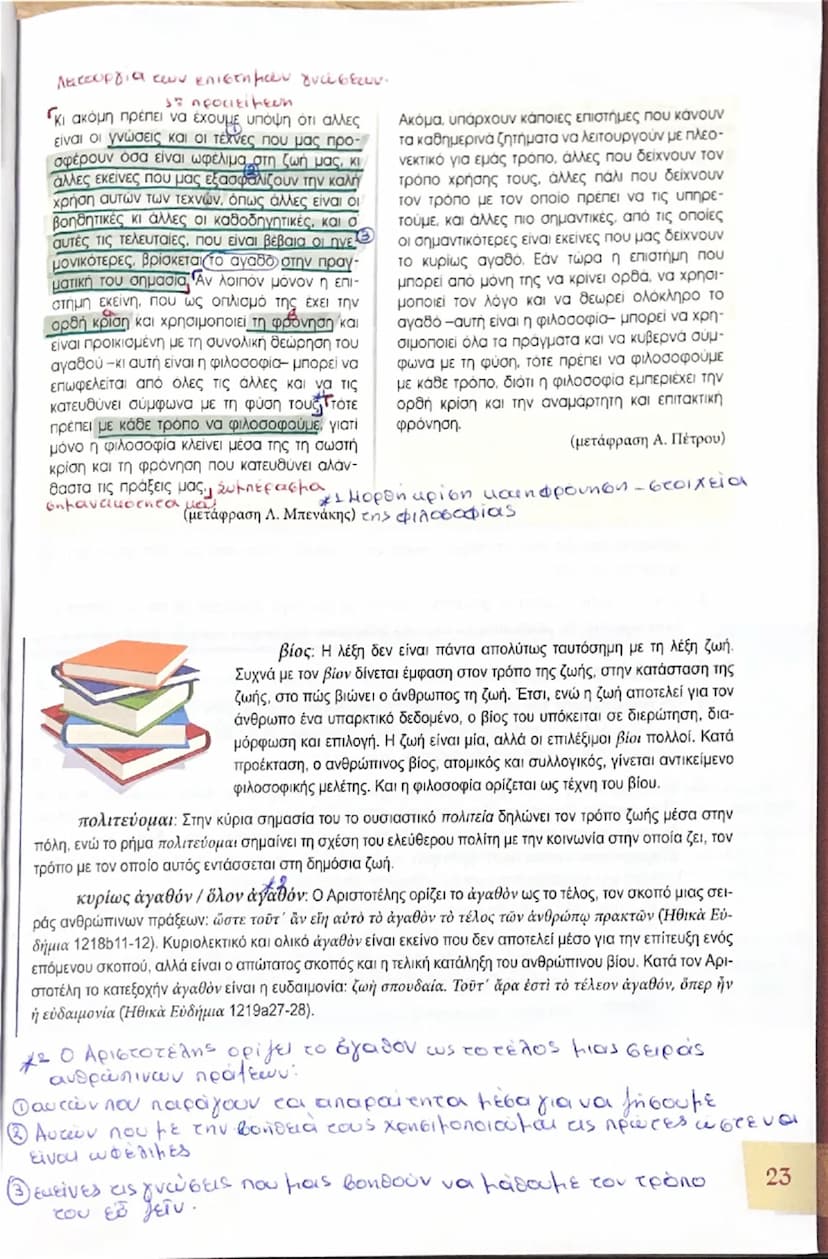 Λειτουργία των επιστημών γνώσεων.
1η προκείμενη
Κι ακόμη πρέπει να έχουμε υπόψη ότι άλλες
είναι οι γνώσεις και οι τέχνες που μας προ-
σφέρουν όσα είναι ωφέλιμα στη ζωή μας, κι
άλλες εκείνες που μας εξασφαλίζουν την καλή
χρήση αυτών των τεχνών, όπως άλλες είναι οι
βοηθητικές κι άλλες οι καθοδηγητικές, και σ'
αυτές τις τελευταίες, που είναι βέβαια οι ηγε-
μονικότερες, βρίσκεται το αγαθό στην πραγ-
ματική του σημασία. Αν λοιπόν μόνον η επι-
στήμη εκείνη, που ως οπλισμό της έχει την
ορθή κρίση και χρησιμοποιεί τη φρόνηση και
είναι προικισμένη με τη συνολική θεώρηση του
αγαθού –κι αυτή είναι η φιλοσοφία– μπορεί να
επωφελείται από όλες τις άλλες και να τις
κατευθύνει σύμφωνα με τη φύση τους, τότε
πρέπει με κάθε τρόπο να φιλοσοφούμε, γιατί
μόνο η φιλοσοφία κλείνει μέσα της τη σωστή
κρίση και τη φρόνηση που κατευθύνει αλάν-
θαστα τις πράξεις μας. Συμπέρασμα
(μετάφραση Λ. Μπενάκης)
Ακόμα, υπάρχουν κάποιες επιστήμες που κάνουν
τα καθημερινά ζητήματα να λειτουργούν με πλεο-
νεκτικό για εμάς τρόπο, άλλες που δείχνουν τον
τρόπο χρήσης τους, άλλες πάλι που δείχνουν
τον τρόπο με τον οποίο πρέπει να τις υπηρε-
τούμε, και άλλες πιο σημαντικές, από τις οποίες
οι σημαντικότερες είναι εκείνες που μας δείχνουν
το κυρίως αγαθό. Εάν τώρα η επιστήμη που
μπορεί από μόνη της να κρίνει ορθά, να χρησι-
μοποιεί τον λόγο και να θεωρεί ολόκληρο το
αγαθό –αυτή είναι η φιλοσοφία– μπορεί να χρη-
σιμοποιεί όλα τα πράγματα και να κυβερνά σύμ-
φωνα με τη φύση, τότε πρέπει να φιλοσοφούμε
με κάθε τρόπο, διότι η φιλοσοφία εμπεριέχει την
ορθή κρίση και την αναμάρτητη και επιτακτική
φρόνηση.
(μετάφραση Α. Πέτρου)
*1 Η ορθή κρίση και η φρόνηση – στοιχεία
της φιλοσοφίας
βίος: Η λέξη δεν είναι πάντα απολύτως ταυτόσημη με τη λέξη ζωή.
Συχνά με τον βίον δίνεται έμφαση στον τρόπο της ζωής, στην κατάσταση της
ζωής, στο πώς βιώνει ο άνθρωπος τη ζωή. Έτσι, ενώ η ζωή αποτελεί για τον
άνθρωπο ένα υπαρκτικό δεδομένο, ο βίος του υπόκειται σε διερώτηση, δια-
μόρφωση και επιλογή. Η ζωή είναι μία, αλλά οι επιλέξιμοι βίοι πολλοί. Κατά
προέκταση, ο ανθρώπινος βίος, ατομικός και συλλογικός, γίνεται αντικείμενο
φιλοσοφικής μελέτης. Και η φιλοσοφία ορίζεται ως τέχνη του βίου.
πολιτεύομαι: Στην κύρια σημασία του το ουσιαστικό πολιτεία δηλώνει τον τρόπο ζωής μέσα στην
πόλη, ενώ το ρήμα πολιτεύομαι σημαίνει τη σχέση του ελεύθερου πολίτη με την κοινωνία στην οποία ζει, τον
τρόπο με τον οποίο αυτός εντάσσεται στη δημόσια ζωή.
κυρίως ἀγαθόν / ὅλον ἀγαθόν: Ο Αριστοτέλης ορίζει το ἀγαθὸν ως το τέλος, τον σκοπό μιας σει-
ράς ανθρώπινων πράξεων: ὥστε τοῦτ' ἂν εἴη αὐτὸ τὸ ἀγαθὸν τὸ τέλος τῶν ἀνθρώπῳ πρακτῶν (Ἠθικὰ Εὐ-
δήμια 1218b11-12). Κυριολεκτικό και ολικό ἀγαθὸν είναι εκείνο που δεν αποτελεί μέσο για την επίτευξη ενός
επόμενου σκοπού, αλλά είναι ο απώτατος σκοπός και η τελική κατάληξη του ανθρώπινου βίου. Κατά τον Αρι-
στοτέλη το κατεξοχήν ἀγαθὸν είναι η ευδαιμονία: ζωὴ σπουδαία. Τοῦτ' ἄρα ἐστὶ τὸ τέλεον ἀγαθόν, ὅπερ ἦν
ἡ εὐδαιμονία (Ἠθικὰ Εὐδήμια 1219a27-28).
*2 Ο Αριστοτέλης ορίζει το ἀγαθον ως το τέλος μιας σειράς
ανθρώπινων πράξεων:
① αυτών που παράγουν τα απαραίτητα μέσα για να ζήσουμε
② Αυτών που με την βοήθειά τους χρησιμοποιούμαι τις πρώτες ώστε να
είναι ωφέλιμες
③ εκείνες τις γνώσεις που μας βοηθούν να μάθουμε τον τρόπο
του εὖ ζεῖν.
23